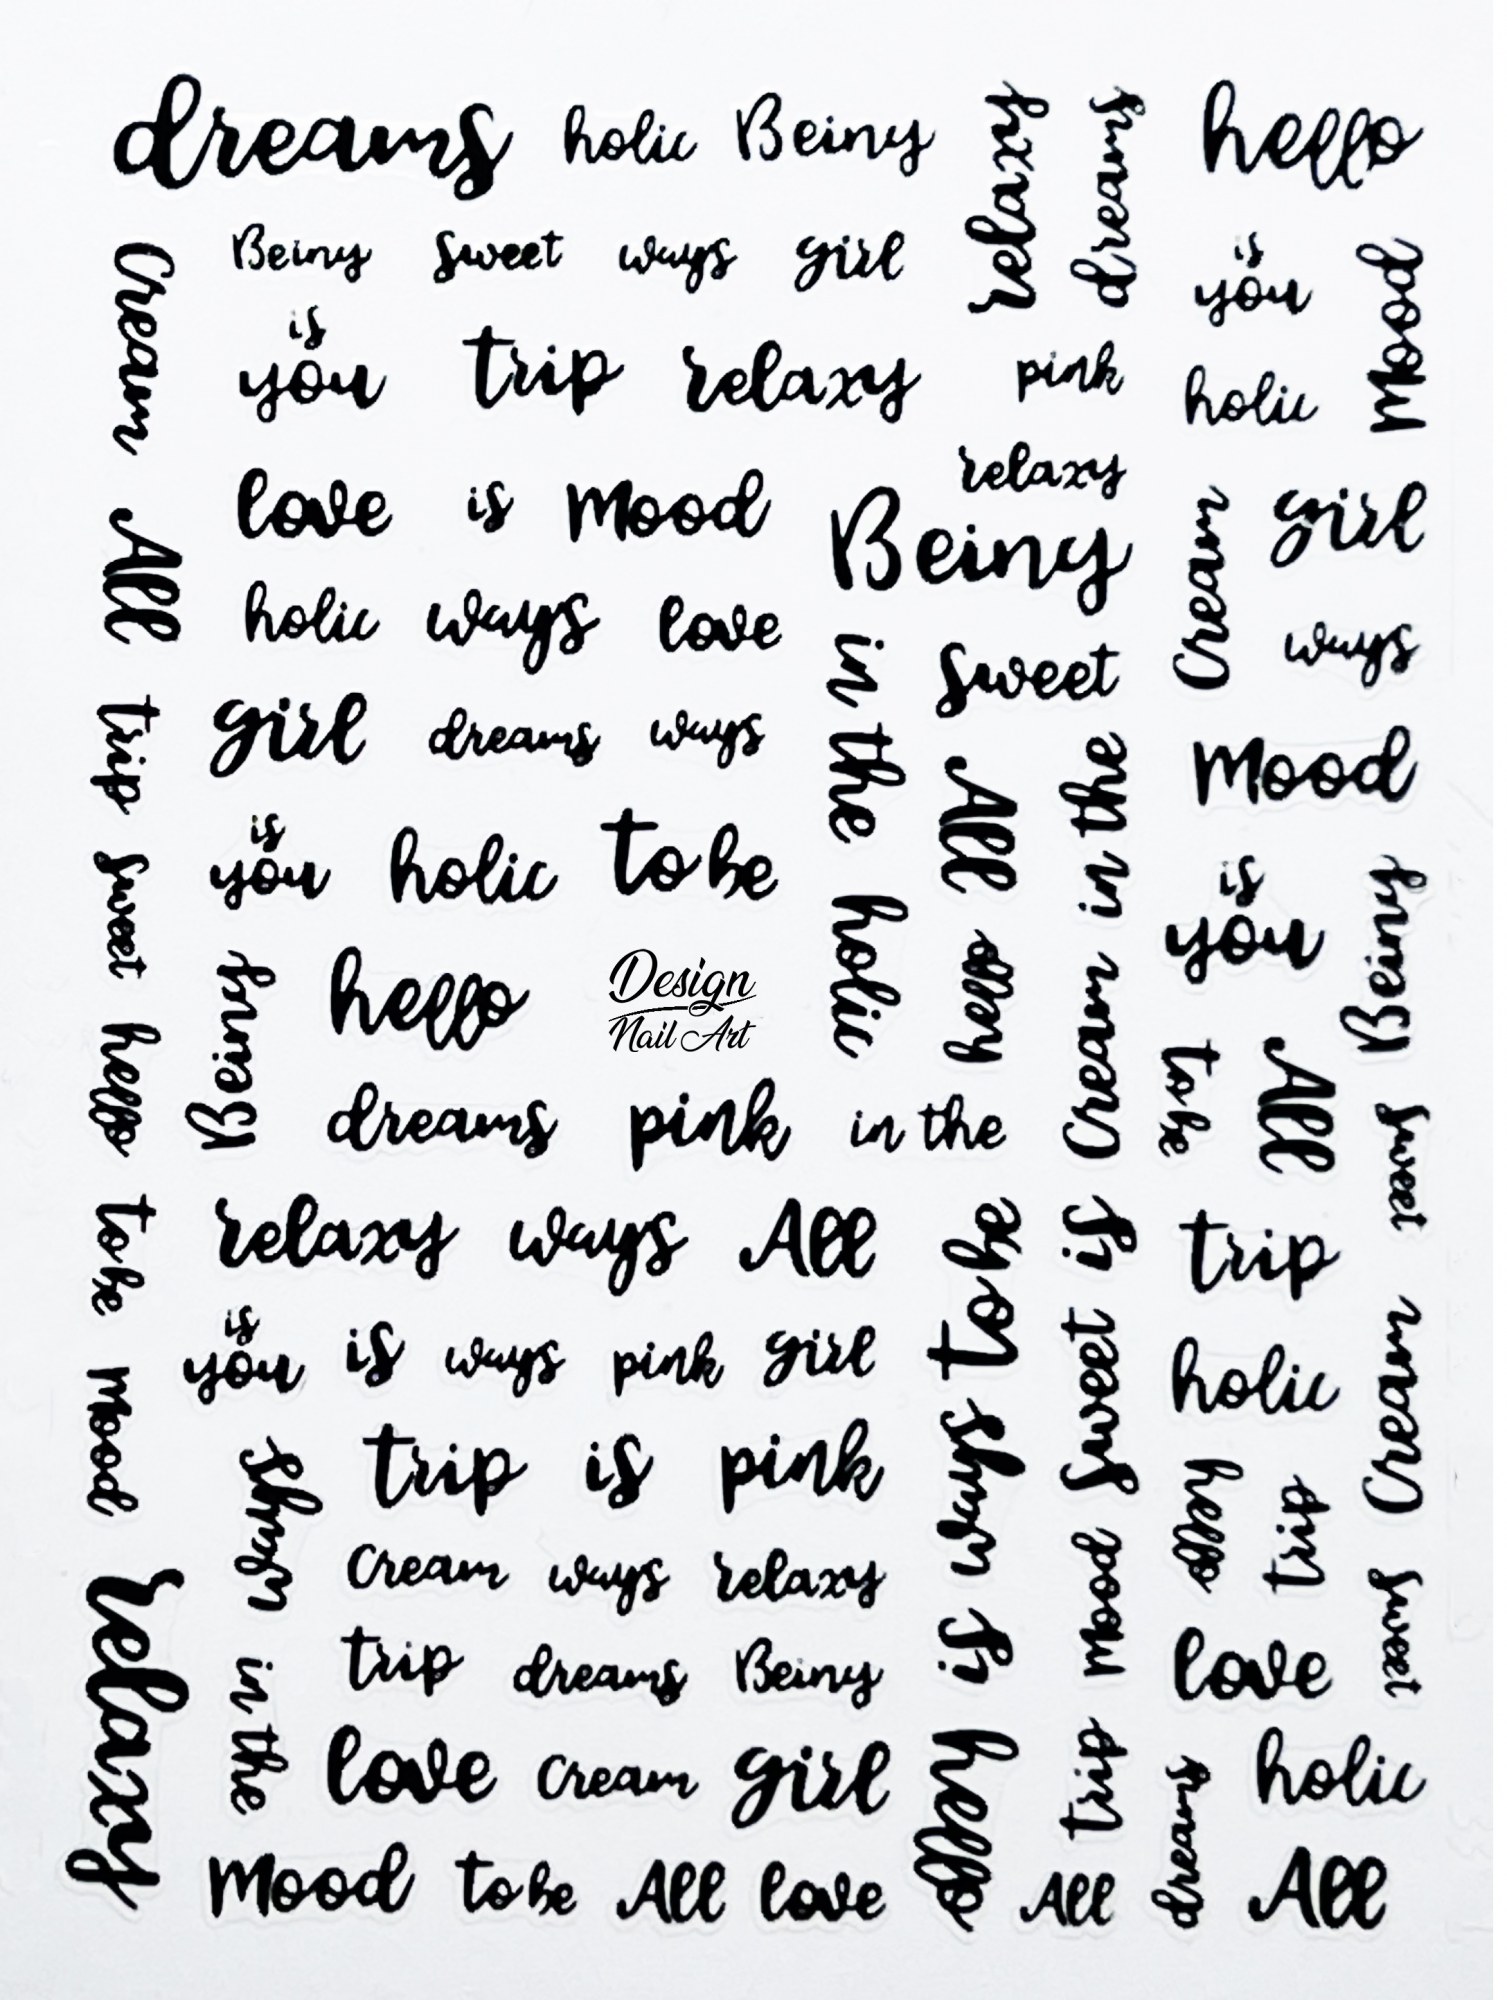 dreams holic Beiny relaxy dreams hello
Cream Beiny sweet ways girl is you Mood
is you trip relaxy pink holic
love is Mood relaxy
Beiny Cream girl
All holic ways love in the sweet ways
trip girl dreams ways All Cream in the Mood
sweet is you holic to be holic hello is you Beiny
hello Beiny hello
Design
Nail Art
to be All
dreams pink in the sweet
to be relaxy ways All to be sweet is trip
is you is ways pink girl holic Cream
Mood ways trip is pink ways is hello trip
Cream ways relaxy Mood sweet
relaxy in the trip dreams Beiny love
love Cream girl hello trip dreams holic
Mood to be All love All All